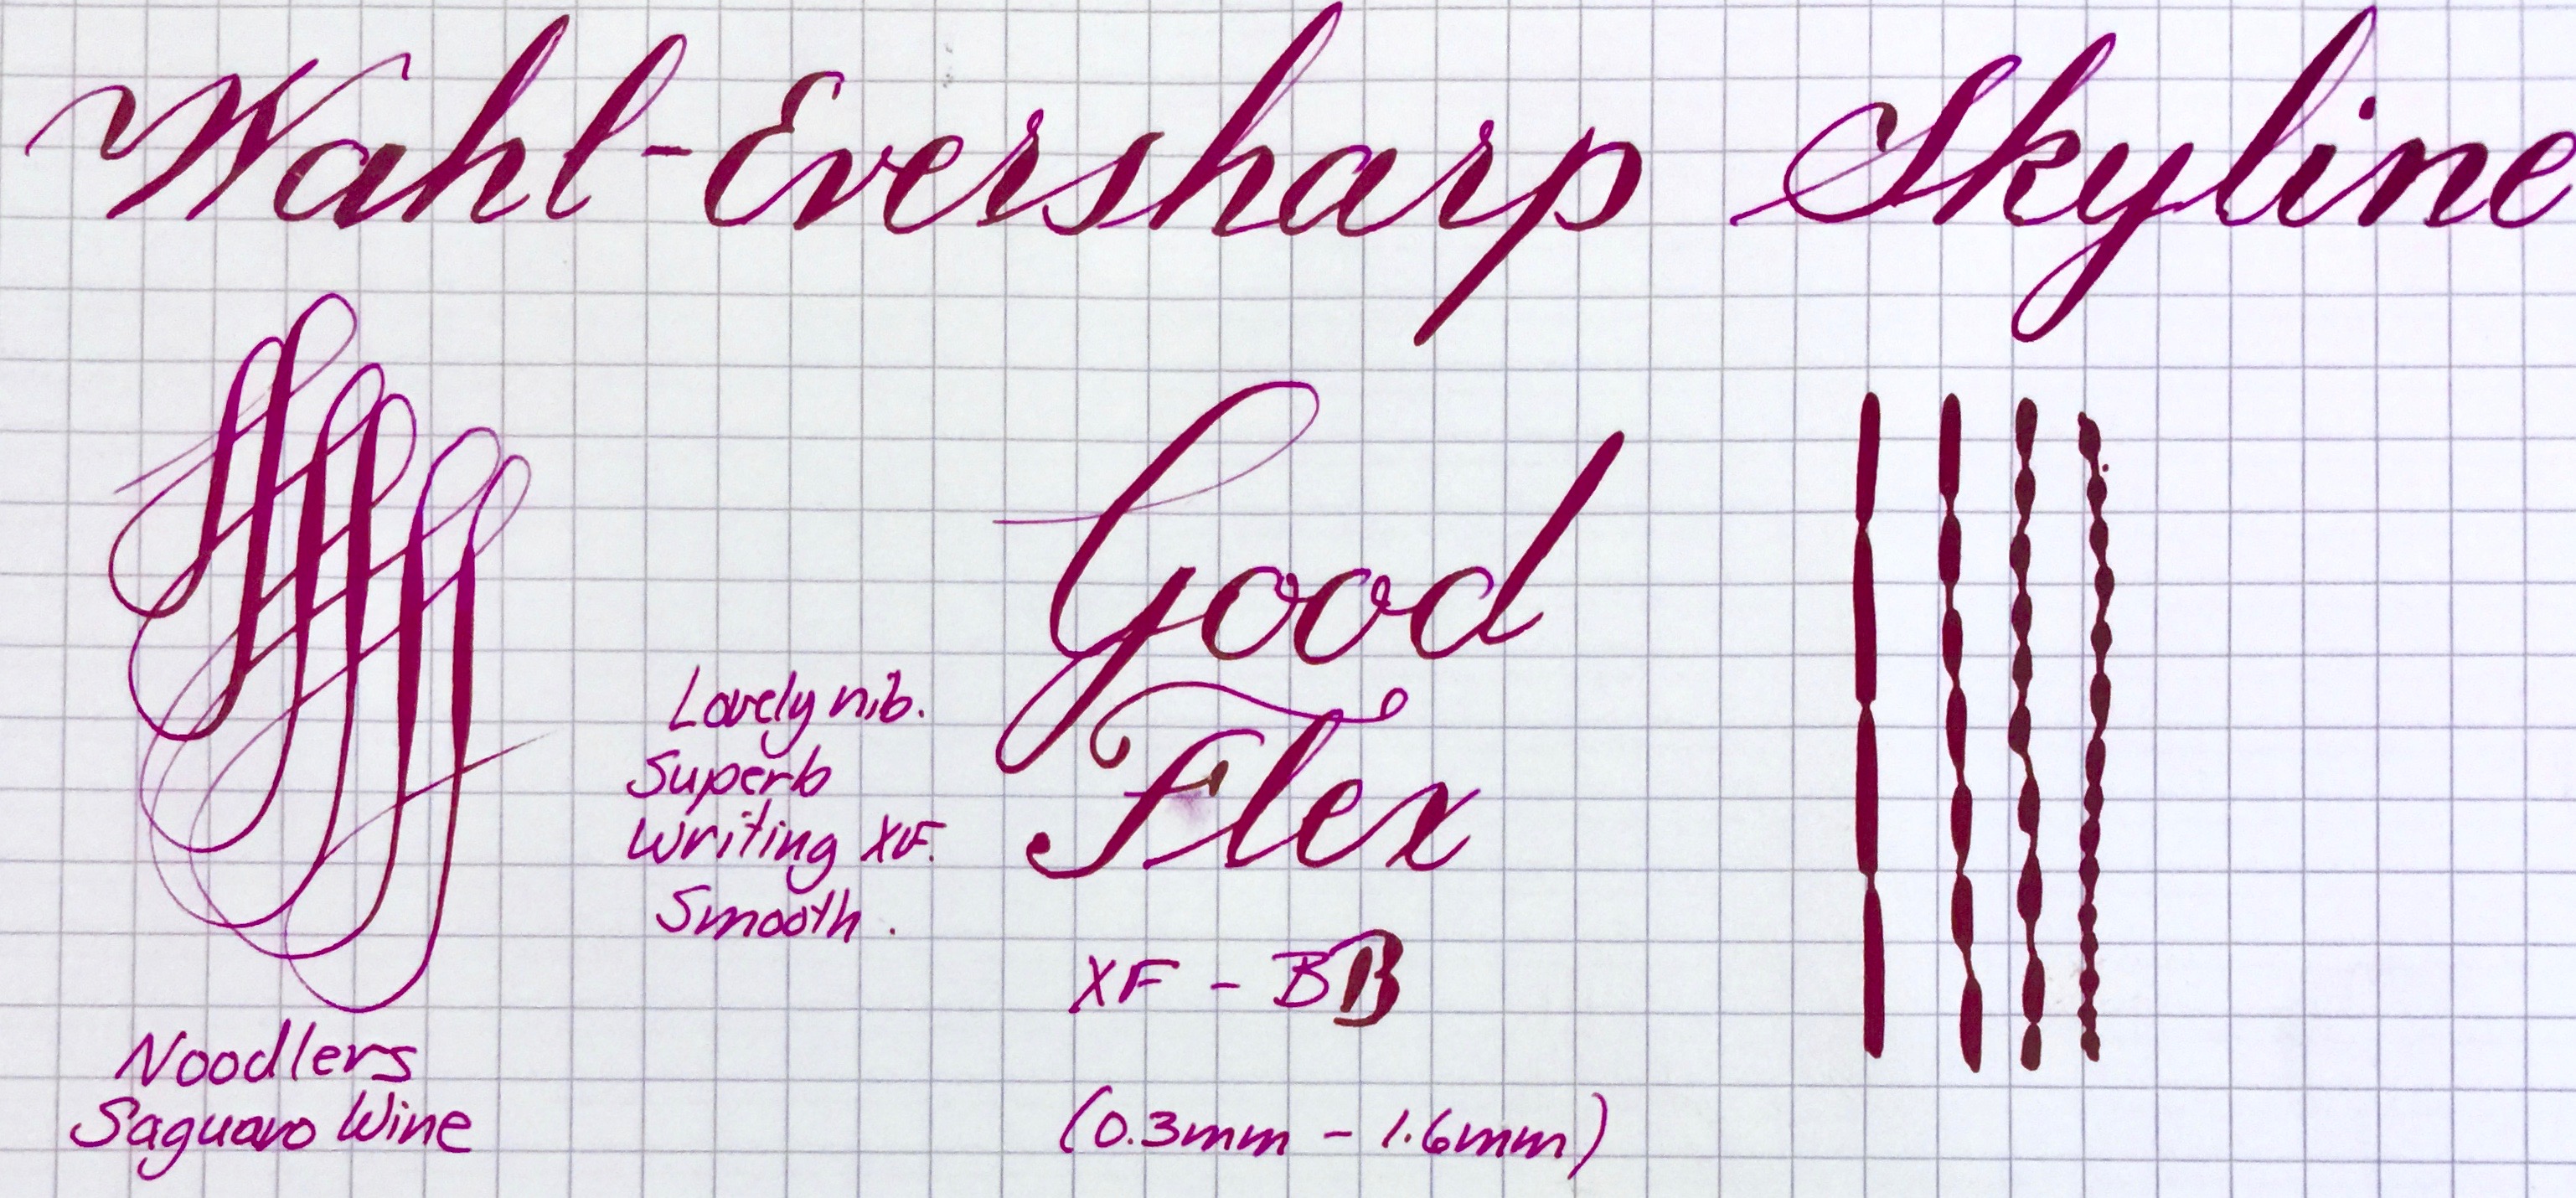 Wahl-Eversharp Skyline
Good
Flex
Lovely nib.
Superb
Writing XF.
Smooth.
XF - BB
Noodlers
Saguaro Wine
(0.3mm - 1.6mm)